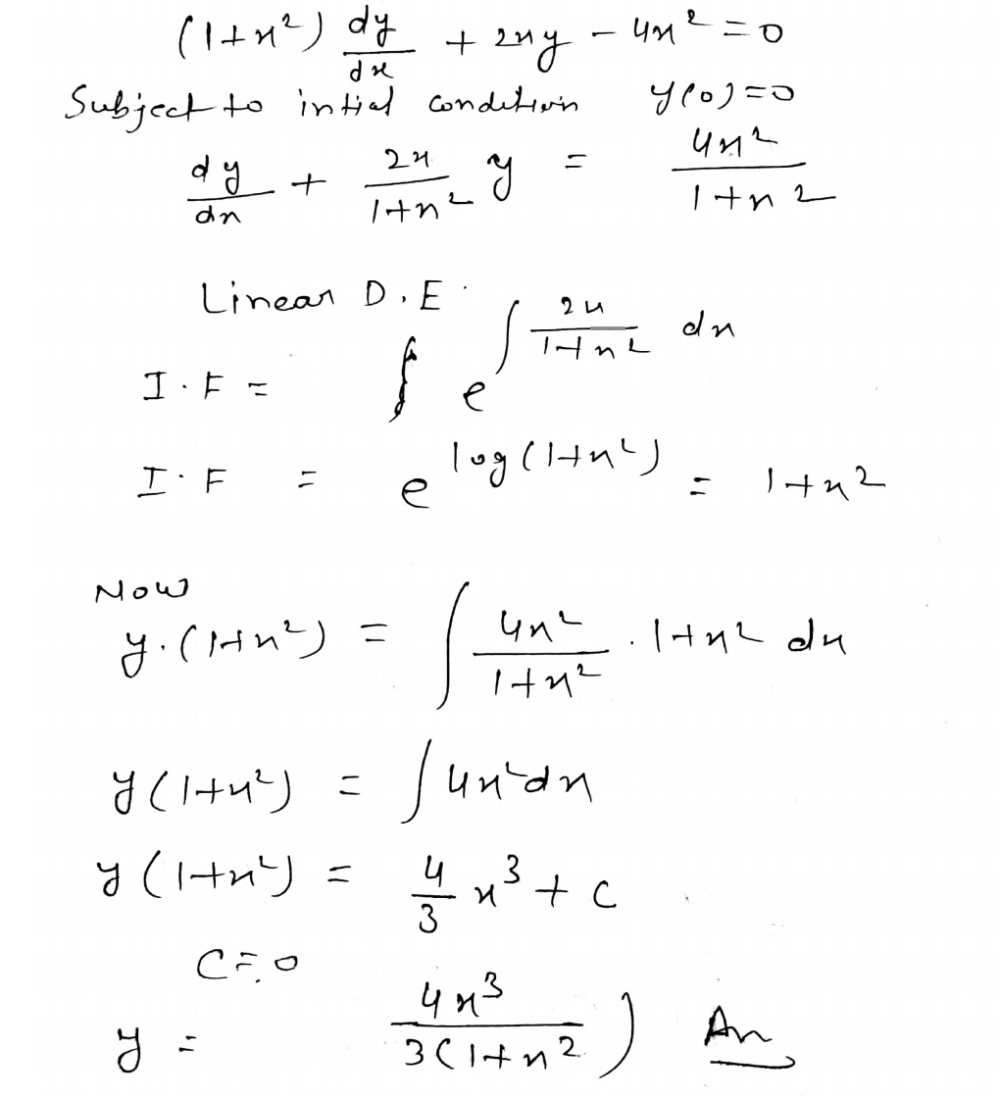 (1+x²) dy/dx + 2xy - 4x² = 0
Subject to intial condition y(0)=0
dy/dx + 2x/1+x² y = 4x²/1+x²
Linear D.E.
I.F = e^∫ 2x/1+x² dx
I.F = e^log(1+x²) = 1+x²
Now
y.(1+x²) = ∫ 4x²/1+x² . 1+x² dx
y(1+x²) = ∫ 4x² dx
y(1+x²) = 4/3 x³ + c
C=0
y = 4x³/3(1+x²) An